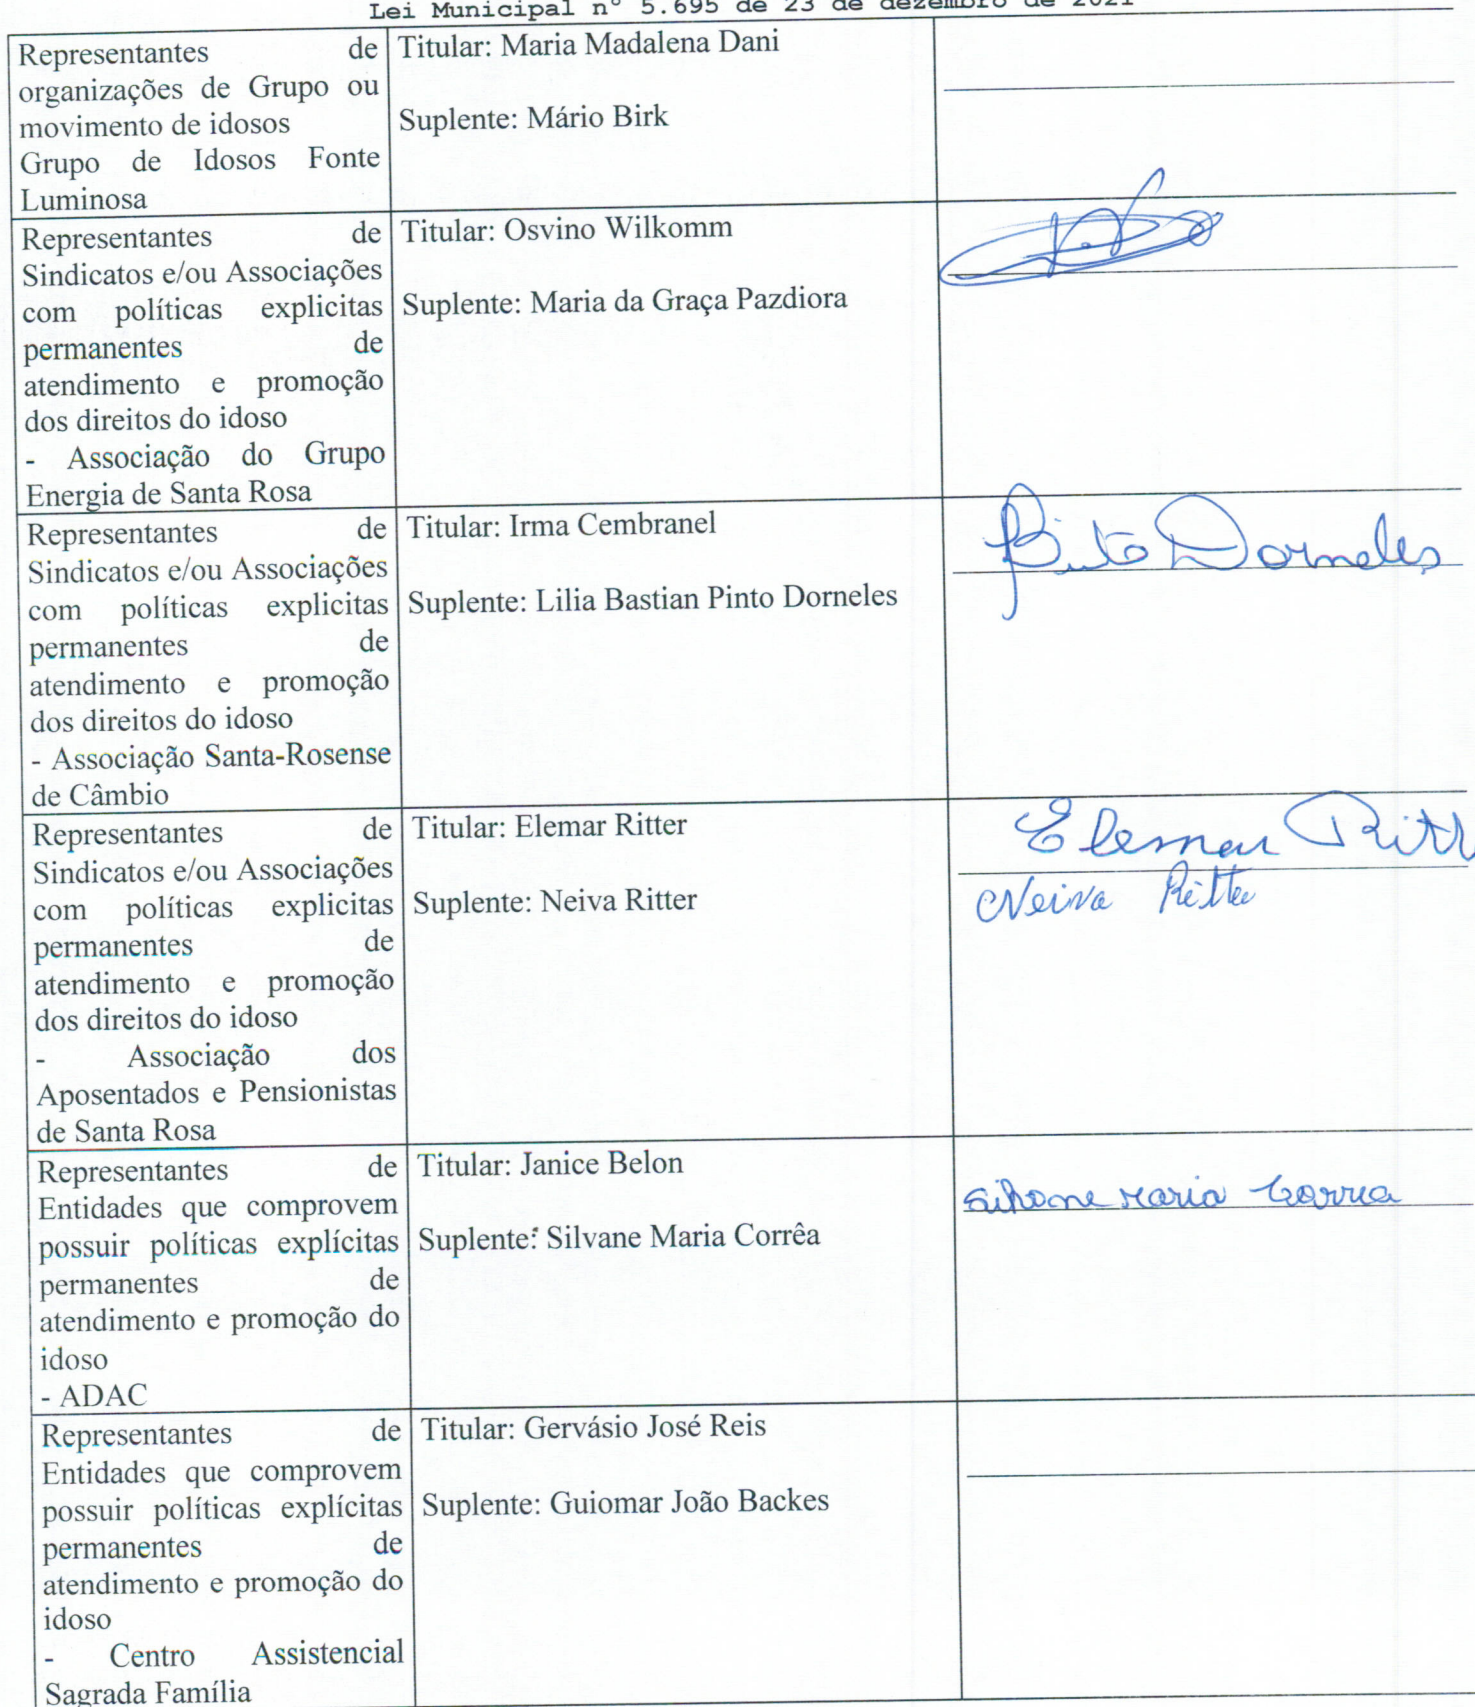 Lei Municipal nº 5.695 de 23 de dezembro de 2021
Representantes de
organizações de Grupo ou
movimento de idosos
Grupo de Idosos Fonte
Luminosa
Titular: Maria Madalena Dani
Suplente: Mário Birk
Representantes de
Sindicatos e/ou Associações
com políticas explicitas
permanentes de
atendimento e promoção
dos direitos do idoso
- Associação do Grupo
Energia de Santa Rosa
Titular: Osvino Wilkomm
Suplente: Maria da Graça Pazdiora
Representantes de
Sindicatos e/ou Associações
com políticas explicitas
permanentes de
atendimento e promoção
dos direitos do idoso
- Associação Santa-Rosense
de Câmbio
Titular: Irma Cembranel
Suplente: Lilia Bastian Pinto Dorneles
Pinto Dorneles
Representantes de
Sindicatos e/ou Associações
com políticas explicitas
permanentes de
atendimento e promoção
dos direitos do idoso
- Associação dos
Aposentados e Pensionistas
de Santa Rosa
Titular: Elemar Ritter
Suplente: Neiva Ritter
Elemar Ritt
Neiva Ritter
Representantes de
Entidades que comprovem
possuir políticas explícitas
permanentes de
atendimento e promoção do
idoso
- ADAC
Titular: Janice Belon
Suplente: Silvane Maria Corrêa
Silvane Maria Correa
Representantes de
Entidades que comprovem
possuir políticas explícitas
permanentes de
atendimento e promoção do
idoso
- Centro Assistencial
Sagrada Família
Titular: Gervásio José Reis
Suplente: Guiomar João Backes